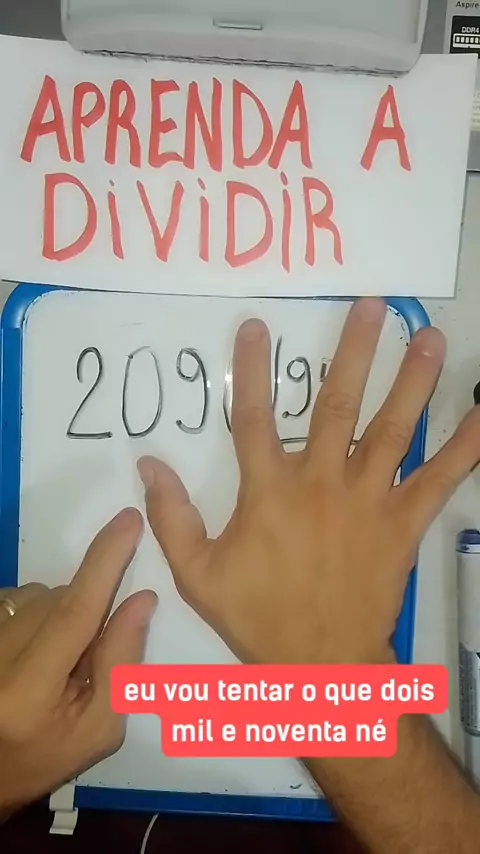 Aspire
DDR4
APRENDA A
DIVIDIR
209
eu vou tentar o que dois
mil e noventa né